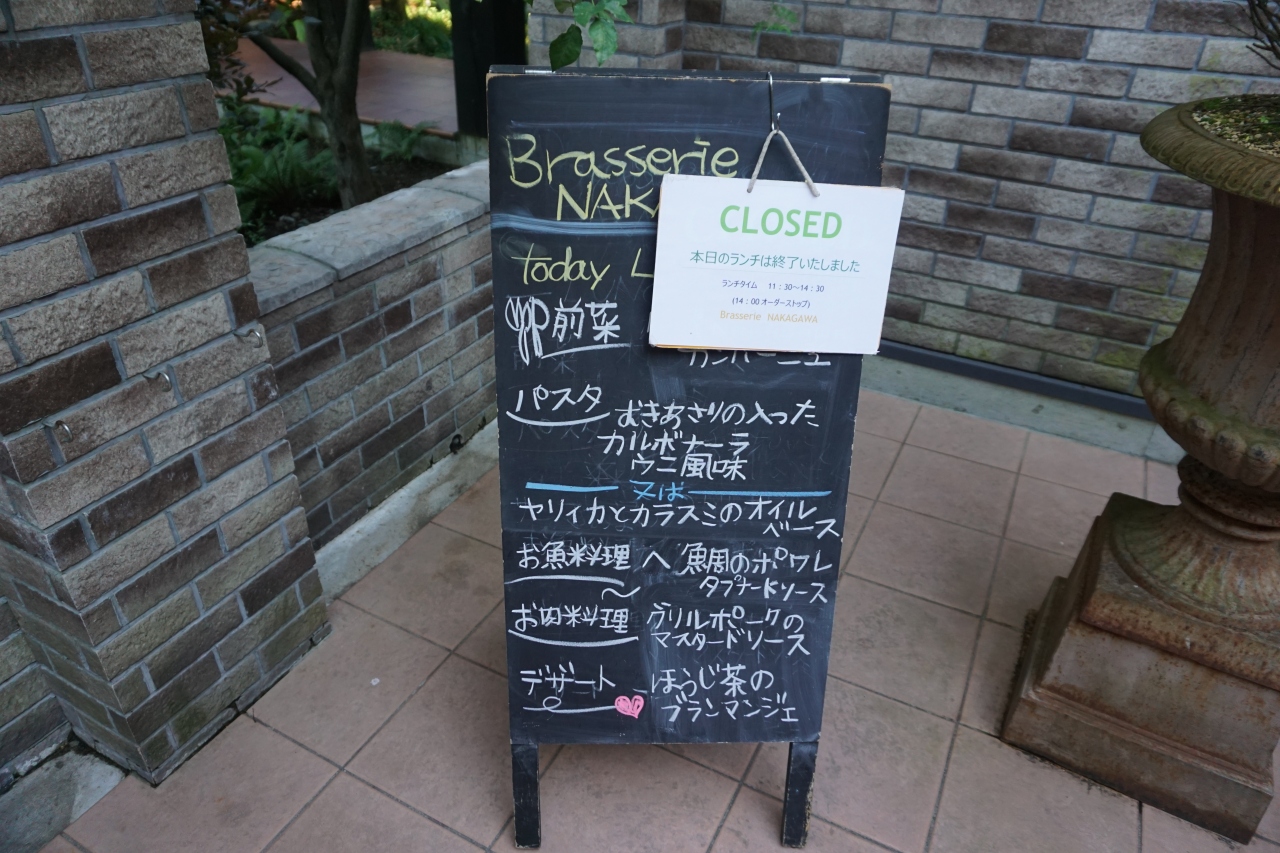 Brasserie
NAKA
today L
CLOSED
本日のランチは終了いたしました
ランチタイム 11：30～14：30
(14：00 オーダーストップ)
Brasserie NAKAGAWA
前菜
カンパーニュ
パスタ
むきあさりの入った
カルボナーラ
ウニ風味
又は
ヤリイカとカラスミのオイル
ベース
お魚料理 へ 鯛のポワレ
タプナードソース
お肉料理 グリルポークの
マスタードソース
デザート ほうじ茶の
ブランマンジェ